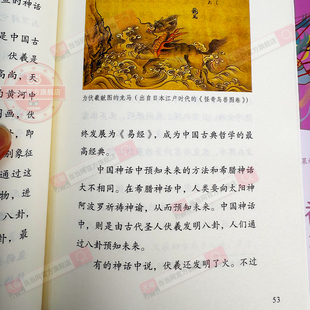 为伏羲献图的龙马（出自日本江户时代的《怪奇鸟兽图卷》）
终发展为《易经》，成为中国古典哲学的最
高经典。
中国神话中预知未来的方法和希腊神话
大不相同。在希腊神话中，人类要向太阳神
阿波罗祈祷神谕，从而预知未来。中国神话
中，则是由古代圣人伏羲发明八卦，人们通
过八卦预知未来。
有的神话中说，伏羲还发明了火。不过
53
的神话
是中国古
伏羲是
高尚，天
黄河中
图画，伏
卦，即
别象征
通过这
物，进
八卦，
卦，最